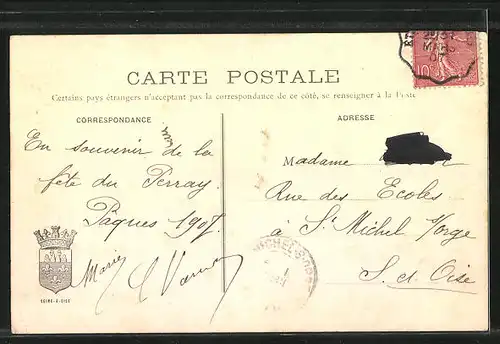 CARTE POSTALE
Certains pays étrangers n'acceptant pas la correspondance de ce côté, se renseigner à la Poste
CORRESPONDANCE
En souvenir de la
fête du Perray.
Pâques 1907.
Marie
SEINE-&-OISE
ADRESSE
Madame
Rue des Ecoles
à St Michel s/orge
S. et Oise
10